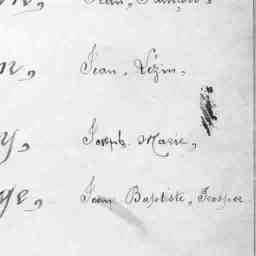 Jean,
n, Jean, Lézin,
y, Joseph Marie,
ge, Jean Baptiste, Prosper